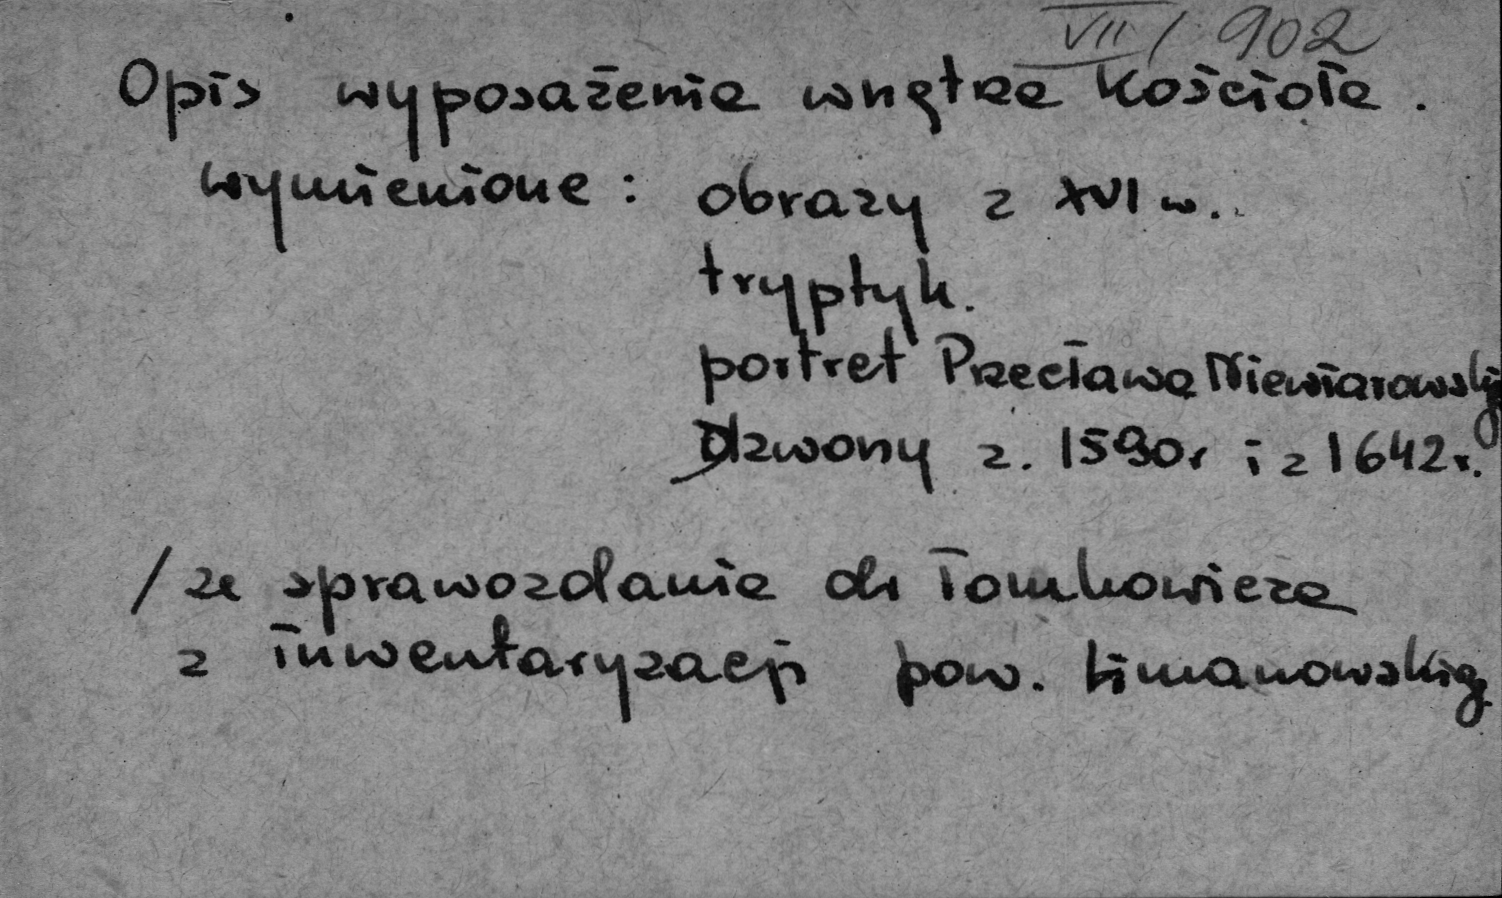 VII / 902
Opis wyposażenia wnętrza kościoła.
wymienione: obrazy z XVI w..
tryptyk.
portret Przecława Niewiarowskieg
Dzwony z. 1590r i z 1642r.
/ ze sprawozdania dr Tomkowicza
z inwentaryzacji pow. Limanowskieg